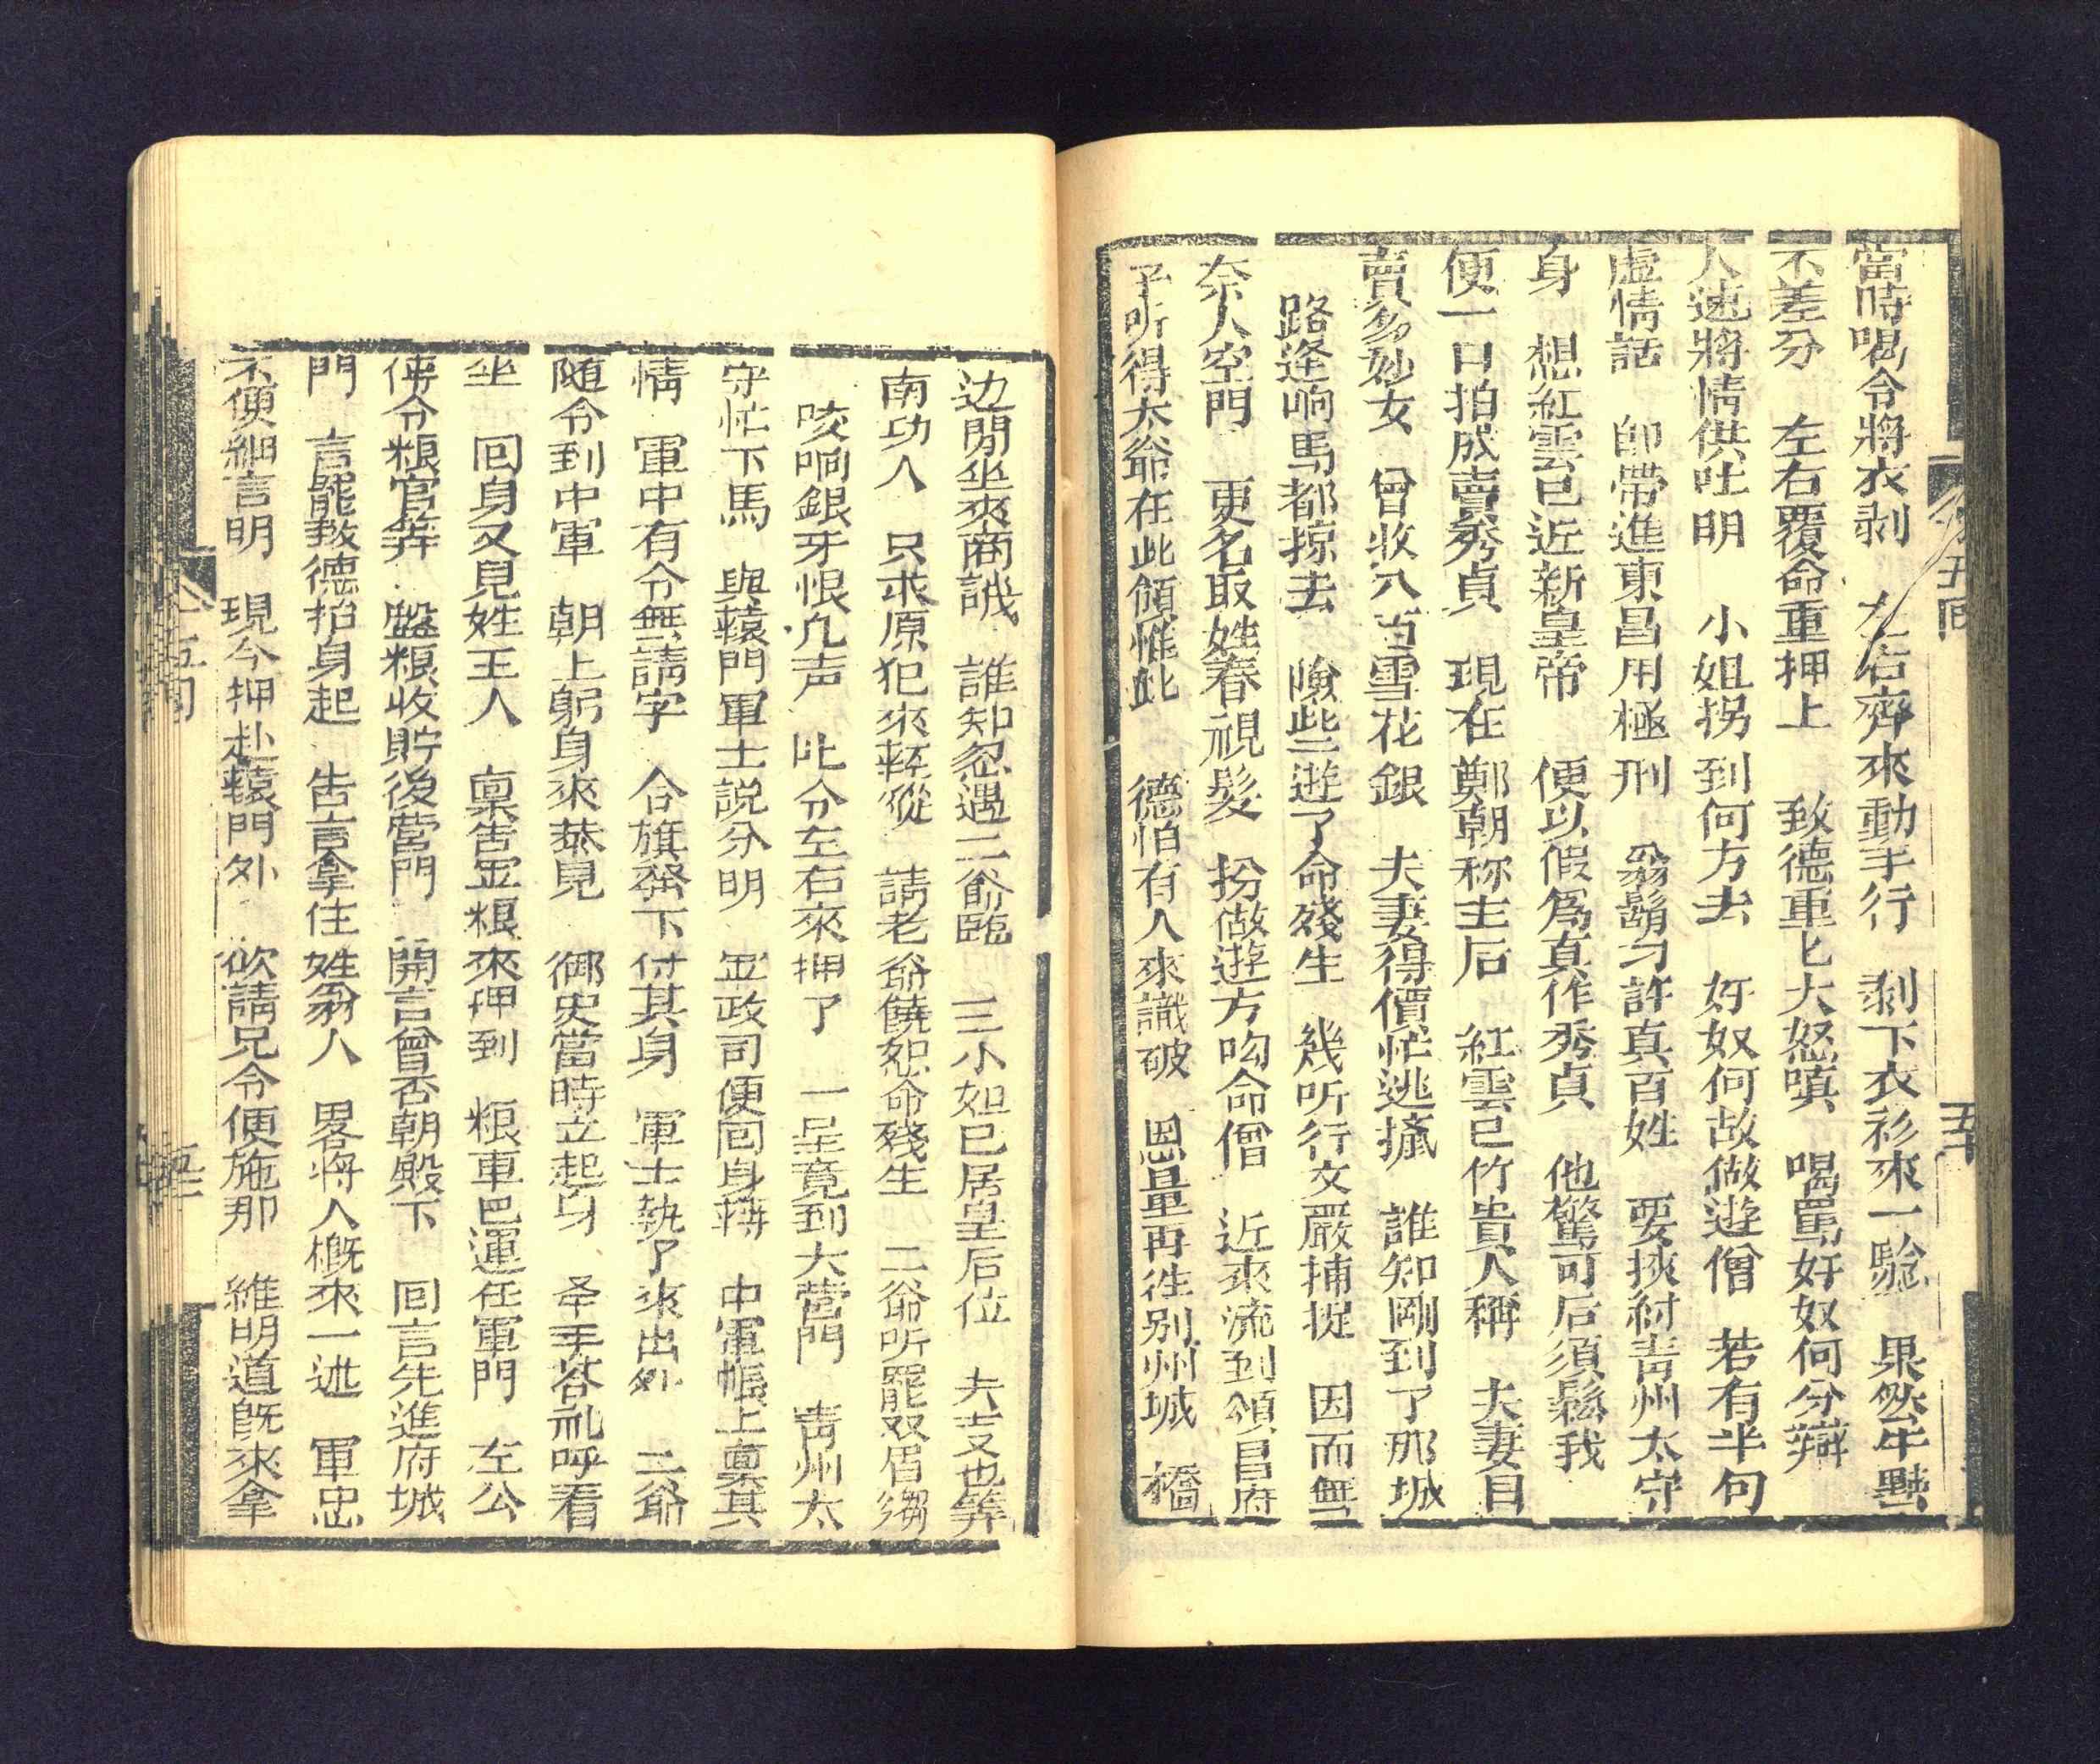 當時喝令將衣剥　左右齊來動手行　剥下衣衫來一驗　果然牛點
不差分　左右覆命重押上　致德重匕大怒嗔　喝罵奸奴何分辯
人速將情供吐明　小姐拐到何方去　奸奴何故做遊僧　若有半句
虛情話　即帶進東昌用極刑　翁鬍刁許真百姓　要挾紂青州太守
身　想紅雲已近新皇帝　便以假為真作秀貞　他驚可后須鬆我
便一口拍成賣秀貞　現在鄭朝称主后　紅雲已竹貴人稱　夫妻自
賣多妙女　曾收八百雪花銀　夫妻得價忙逃　誰知剛到了那城
路逢响馬都掠去　險些遊了命殘生　幾听行文嚴捕捉　因而無
奈人空門　更名取姓春視髮　扮做遊方吻命僧　近來流到頌昌府
予听得太爺在此傾惟此　德怕有人來識破　恩量再往别州城　橋
边閒坐來商議　誰知忽遇二爺臨　三小姐已居皇后位　夫支也筭
南功人　只求原犯來輕縱　請老爺饒恕命殘生　二爺听罷双眉縐
咬响銀牙恨几声　叱令左右來押了　一呈竟到大營門　青州太
守忙下馬　與轅門軍士説分明　政司便回身轉　中軍帳上稟其
情　軍中有令無請字　合旗發下付其身　軍士執了來出外　二爺
随令到中軍　朝上躬身來恭見　御史當時立起身　手荅礼呼看
坐　回身又見姓王人　稟告粮來押到　粮車已運在軍門　左公
傳令粮官筭　盤粮收貯後營門　開言曾否朝殿下　回言先進府城
門　言罷致德抬身起　告言拿住姓翁人　畧將人概來一述　軍忠
不便細言明　現今押赴轅門外　欲請兄令便施那　維明道既來拿